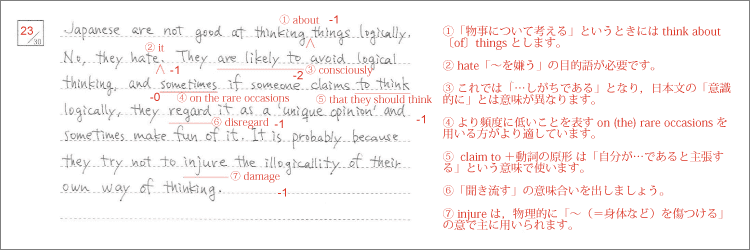 23
30
① about -1
Japanese are not good at thinking things logically.
② it
No, they hate. They are likely to avoid logical
-1
-2
③ consciously
thinking, and sometimes if someone claims to think
-0
④ on the rare occasions
⑤ that they should think
logically, they regard it as a 'unique opinion' and
-1
⑥ disregard -1
sometimes make fun of it. It is probably because
they try not to injure the illogicallity of their
⑦ damage
own way of thinking.
-1
①「物事について考える」というときには think about
〔of〕things とします。
② hate「〜を嫌う」の目的語が必要です。
③ これでは「…しがちである」となり，日本文の「意識
的に」とは意味が異なります。
④ より頻度に低いことを表す on (the) rare occasions を
用いる方がより適しています。
⑤ claim to ＋動詞の原形 は「自分が…であると主張す
る」という意味で使います。
⑥「聞き流す」の意味合いを出しましょう。
⑦ injure は，物理的に「〜（＝身体など）を傷つける」
の意で主に用いられます。